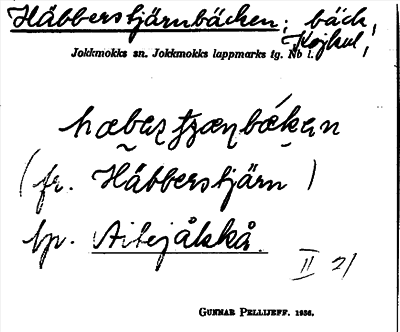 Håbberstjärnbäcken; bäck,
Kojkul;
Jokkmokks sn. Jokkmokks lappmarks tg. Nb l.
(fr. Håbberstjärn)
lp. Aitejåkkå.
II 21
GUNNAR PELLIJEFF. 1956.